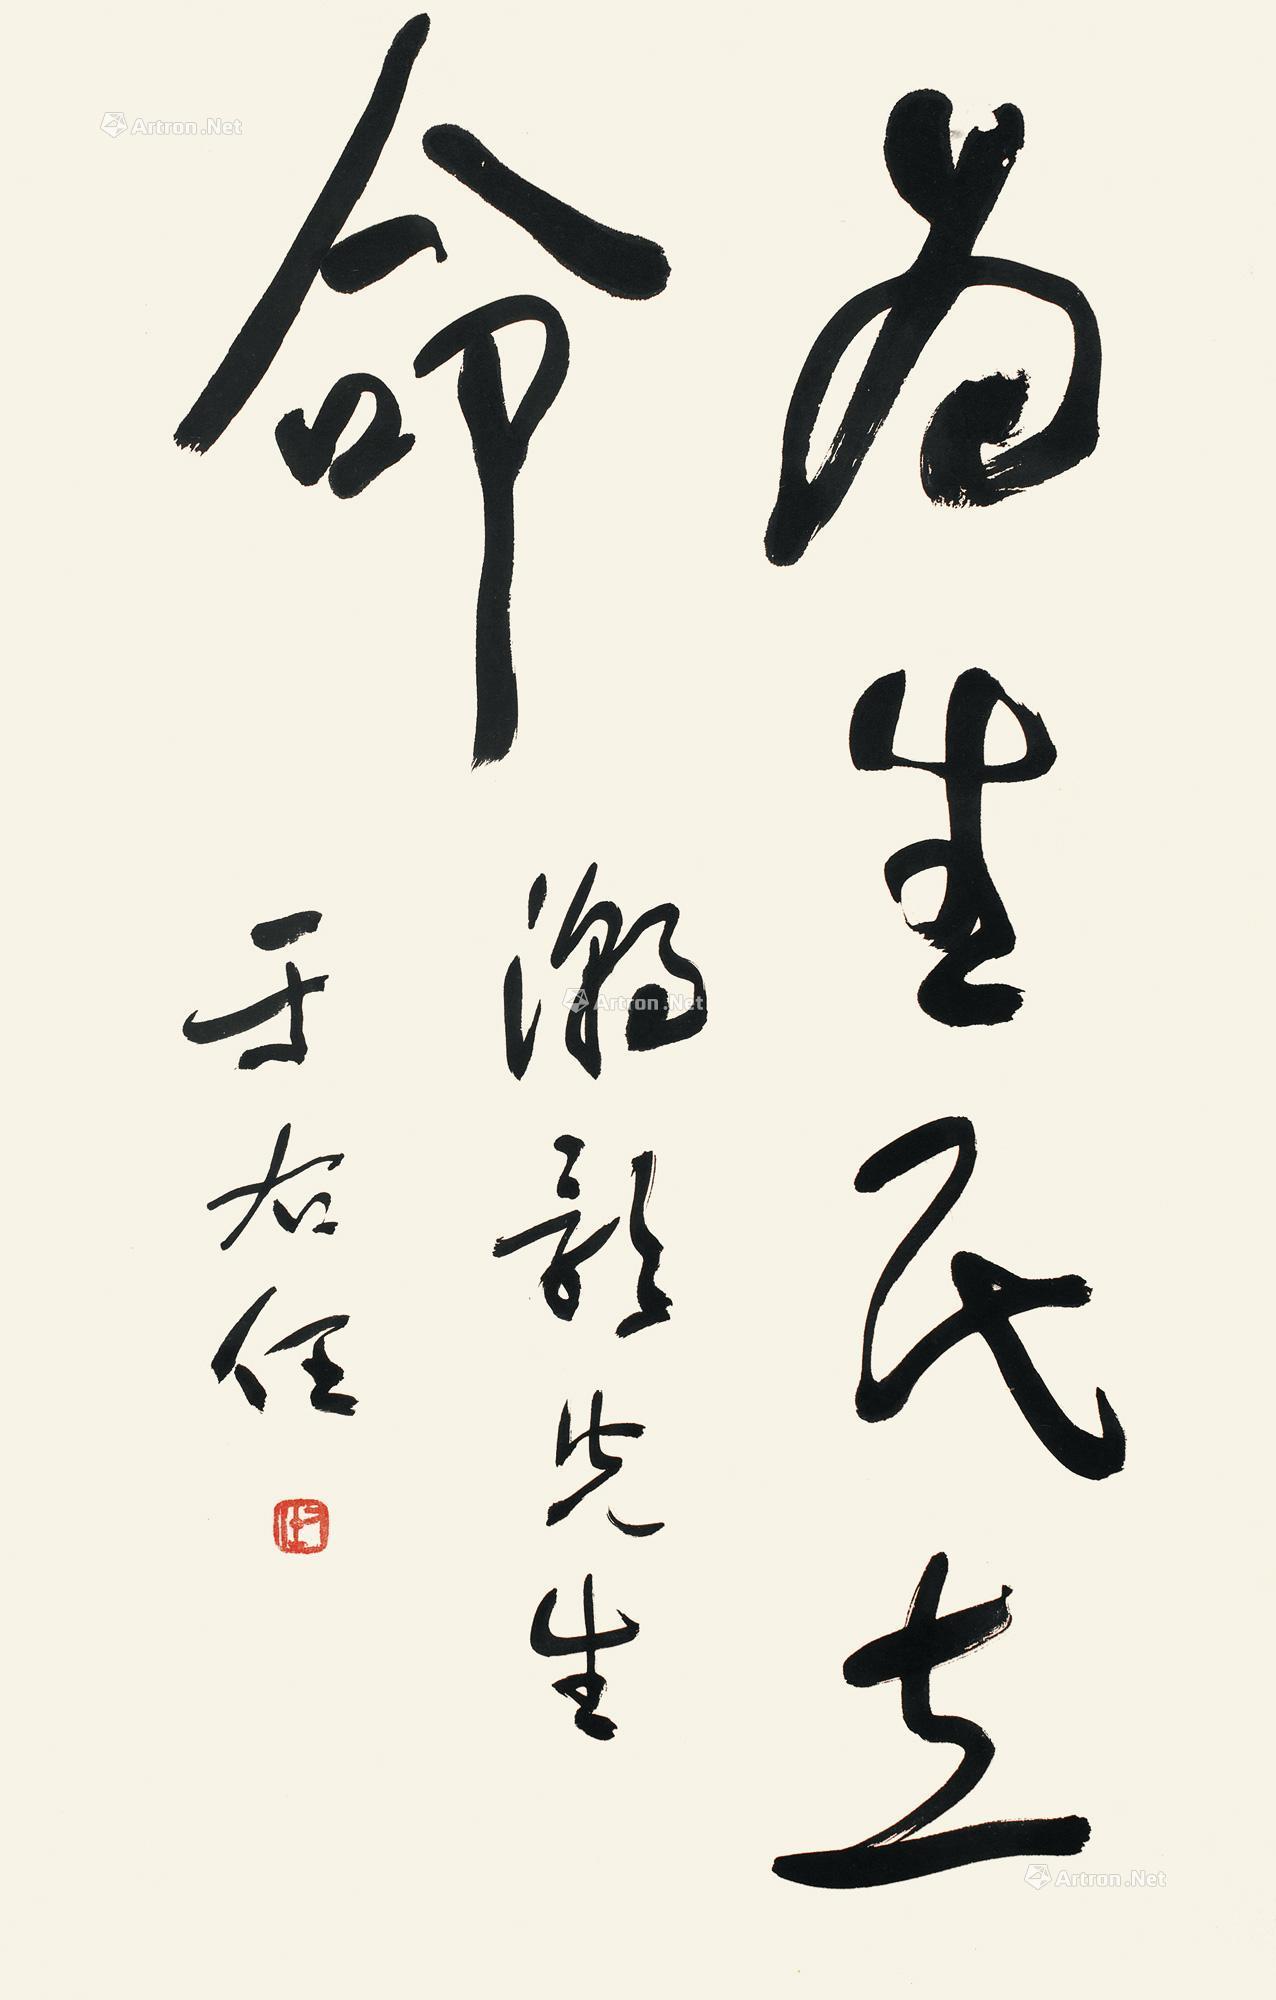 為生民立
命
先生
于右任
右任
Artron.Net
Artron.Net
Artron.Net